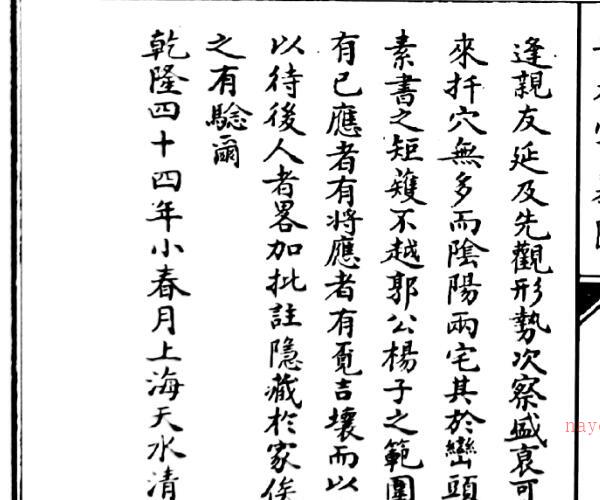 逢親友延及先觀形勢次察盛衰可
來扦穴無多而陰陽兩宅其於巒頭
素書之矩矱不越郭公楊子之範圍
有已應者有將應者有覓吉壤而以
以待後人者畧加批註隱藏於家俟
之有驗爾
乾隆四十四年小春月上海天水清
nay